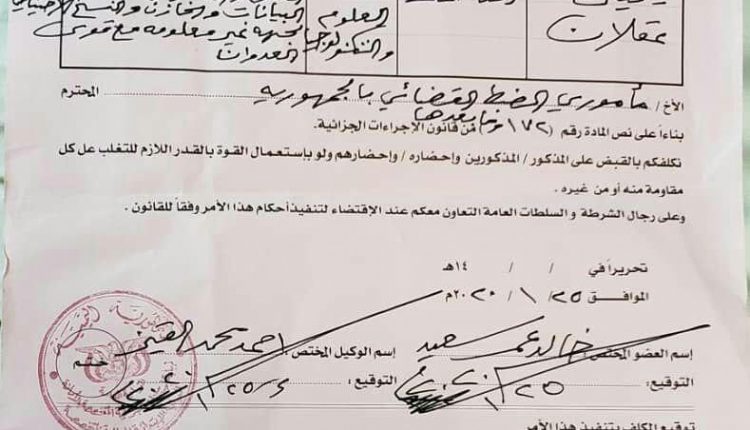 العلوم
والتكنولوجيا
البيانات والخازن والنسخ الاحتياطي
لجهة غير معلومه مع قوى
العدوان
عقلان
الأخ / مأموري الضبط القضائي بالجمهوريه المحترم
بناءاً على نص المادة رقم (١٧٢ وما بعدها) من قانون الإجراءات الجزائية.
نكلفكم بالقبض على المذكور / المذكورين وإحضاره / وإحضارهم ولو بإستعمال القوة بالقدر اللازم للتغلب عل كل
مقاومة منه أو من غيره .
وعلى رجال الشرطة و السلطات العامة التعاون معكم عند الإقتضاء لتنفيذ أحكام هذا الأمر وفقاً للقانون .
تحريراً في / / ١٤هـ
الموافق ٢٥ / ١ / ٢٠٢٠م
إسم العضو المختص : خالد عمر سعيد إسم الوكيل المختص : احمد محمد
التوقيع : التوقيع :
توقيع المكلف بتنفيذ هذا الأمر